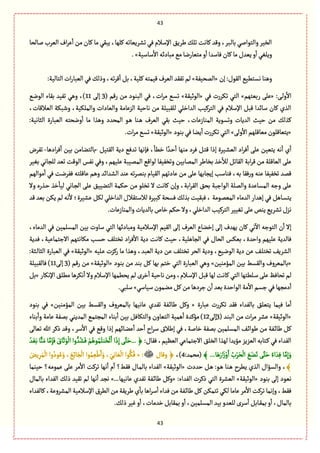 43
الخير والتواصي بالبر، وقد كانت تلك طريق الإسلام في تشريعاته كلها، يبقي ما كان من أعراف العرب صالحا
ويلغي أو يعدل ما كان فاسدا أو متعارضا مع مبادئه الأساسية».
وهنا نستطيع القول: إن «الصحيفة» لم تفقد العرف قيمته كلية، بل أقرّته، وذلك في العبارات التالية:
الأولى: «على ربعتهم» التي تكررت في «الوثيقة» تسع مرات، في البنود من رقم (3 إلى 11)، وهي تفيد بقاء الوضع
الذي كان سائدا قبل الإسلام في التركيب الداخلي للقبيلة من ناحية الزعامة والعادات والملكية، وشبكة العلاقات،
كذلك من حيث الديات وتسوية المنازعات، حيث بقي العرف هنا هو المحدد وهذا ما أوضحته العبارة الثانية:
«يتعاقلون معاقلهم الأولى» التي تكررت أيضا في بنود «الوثيقة» تسع مرات.
أي أنه يتعين على أفراد العشيرة إذا قتل فرد منها أحدا خطأ، فإنها تدفع دية القتيل -بالتضامن بين أفرادها-، تفرض
على العاقلة من قرابة القاتل للأخذ بخاطر المصابين وتخفيفا لواقع المصيبة عليهم، وفي نفس الوقت تعد للجاني بغير
قصد تخفيفا عنه ورفقا به، فناسب إيجابها على من عادتهم القيام بنصرته عند الشدائد وهم عاقلته ففرضت في أموالهم
على وجه المساعدة والصلة الواجبة بحق القرابة، وإن كانت لا تخلو من حكمة التضييق على الجاني ليأخذ حذره ولا
يتساهل في إهدار الدماء المعصومة، فبقيت بذلك فسحة كبيرة للاستقلال الداخلي لكل عشيرة؛ لأنه لم يكن بعد قد
نزل تشريع ينص على تغيير التركيب الداخلي، ولا حكم خاص بالديات والمنازعات.
إلا أن التوجه الآتي كان يهدف إلى إخضاع العرف إلى القيم الإسلامية ومبادئها التي ساوت بين المسلمين في الدماء،
فالدية عليهم واحدة، بعكس الحال في الجاهلية، حيث كانت دية الأفراد تختلف حسب مكانتهم الاجتماعية، فدية
الشريف تختلف عن دية الوضيع، ودية الحر تختلف عن دية العبد، وهذا ما ركزت عليه «الوثيقة» في العبارة الثالثة:
«بالمعروف والقسط بين المؤمنين» وهي العبارة التي ختم بها كل بند من بنود «الوثيقة» من رقم (3 إلى 11) فالقبيلة
لم تحافظ على سلطتها التي كانت لها قبل الإسلام، ومن ناحية أخرى لم يحطمها الإسلام ولا أنكرها مطلق الإنكار «بل
أدمجها في جسم الأمة الواحدة بعد أن جردها من كل مضمون سياسي» سلبي.
أما فيما يتعلق بالفداء فقد تكررت عبارة « وكل طائفة تفدي عانيها بالمعروف والقسط بين المؤمنين» في بنود
«الوثيقة» عشر مرات من البند (3 إلى 12) مؤكدة أهمية التعاون والتكافل بين أبناء المجتمع المديني بصفة عامة وأبناء
كل طائفة من طوائف المسلمين بصفة خاصة، في إطلاق سراح أحد أعضائهم إذا وقع في الأسر، وقد ذكر الله تعالى
الفداء في كتابه العزيز مؤيدا لهذا الخلق الاجتماعي العظيم، فقال: ﴿ ... حَتَّى إِذَا أَثْخَنتُمُوهُمْ فَشُدُّوا الْوَثَاقَ فَإِمَّا مَنًّا بَعْدُ
وَإِمَّا فِدَاءً حَتَّى تَضَعَ الْحَرْبُ أَوْزَارَهَا ... ﴾ (محمد:4)، « وقال ﷺ: « فُكُّوا الْعَانِيَ، وَأَطْعِمُوا الْجَائِعَ، وَعُودُوا الْمَرِيضَ
»، والسؤال الذي يطرح هنا هو: هل حددت «الوثيقة» الفداء بالمال فقط ؟ أم أنها تركت الأمر على عمومه؟ حينما
نعود إلى بنود «الوثيقة» العشرة التي ذكرت الفداء: «وكل طائفة تفدي عانيها...» نجد أنها لم تقيد ذلك الفداء بالمال
فقط، وإنما تركت الأمر عاما لكي تتمكن كل طائفة من فداء أسراها بأي طريقة من الطرق الإسلامية المشروعة، كالفداء
بالمال، أو بمقابل أسرى للعدو بيد المسلمين، أو بمقابل خدمات، أو غير ذلك.
43